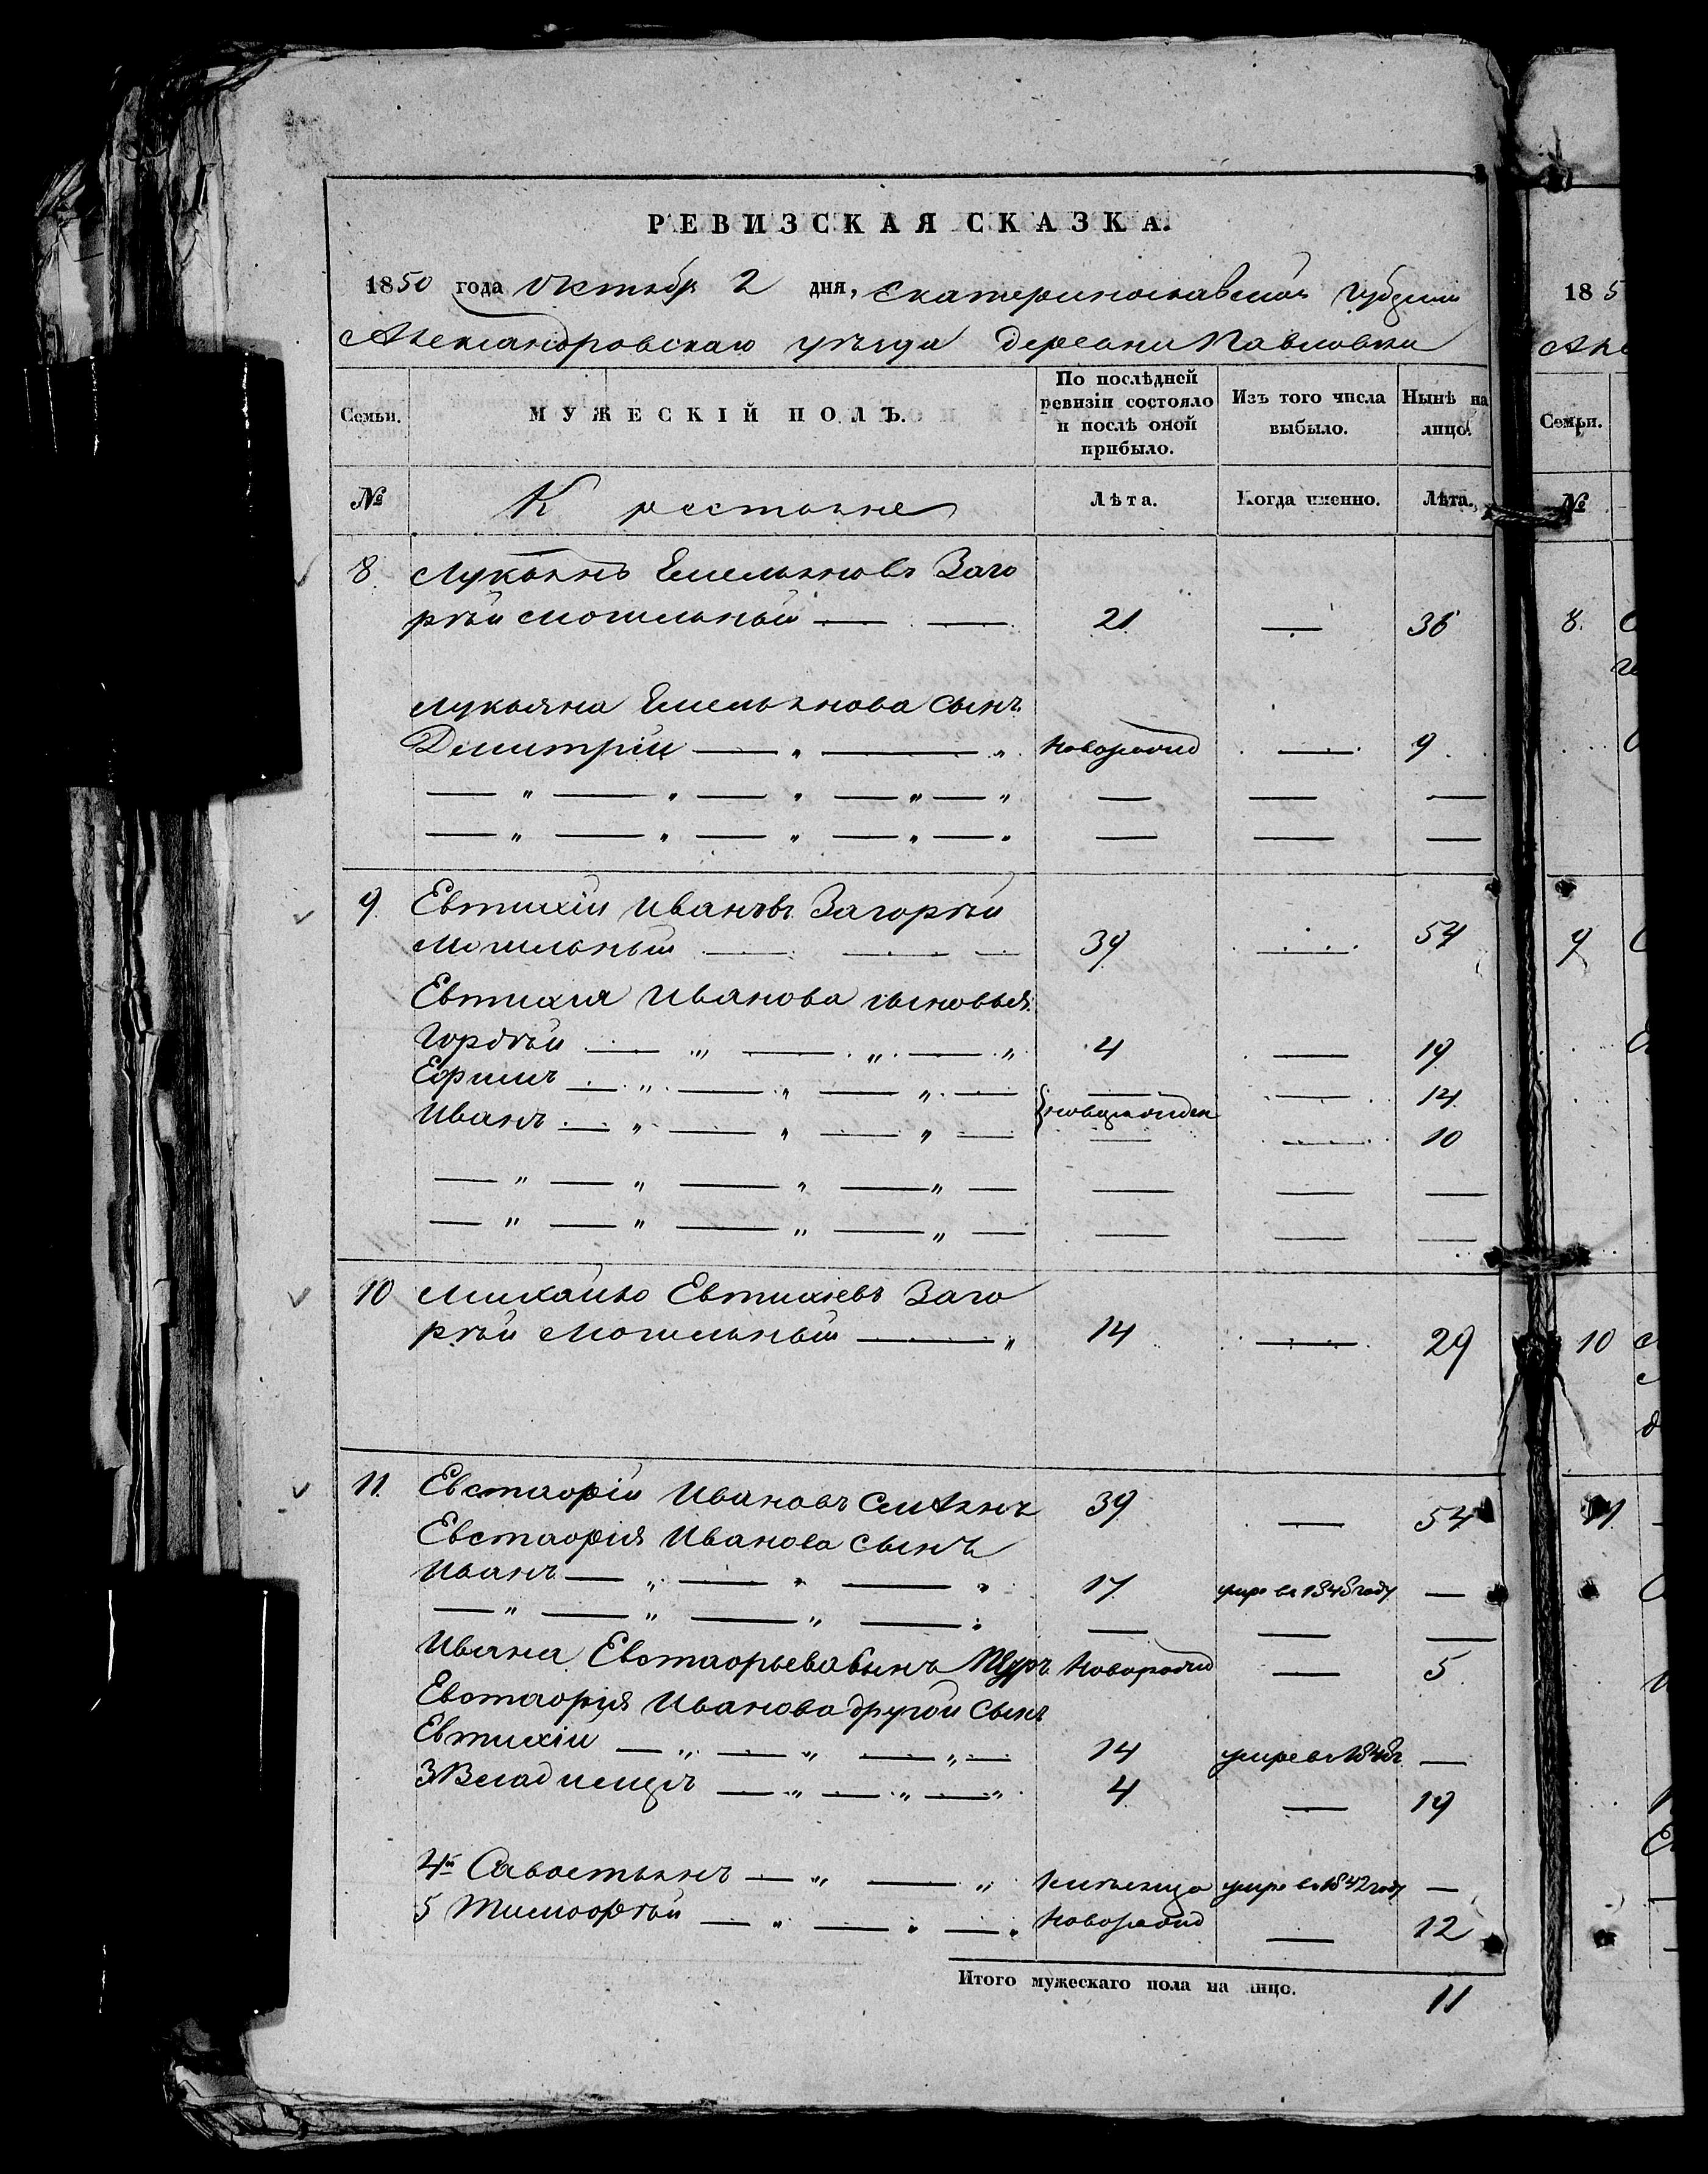 РЕВИЗСКАЯ СКАЗКА.
1850 года Октября 2 дня, Екатеринославской Губернии
Александровскаго уѣзда деревни Павловки
Семьи. МУЖЕСКІЙ ПОЛЪ. По послѣдней ревизіи состояло и послѣ оной прибыло. Изъ того числа выбыло. Нынѣ на лицо.
№ Крестьяне Лѣта. Когда именно. Лѣта.
8. Лукьянъ Емельяновъ Заго
рѣй Могильный 21 — 36
Лукьяна Емельянова сынъ
Димитрій новорожд — 9
9. Евтихій Ивановъ Загорѣй
Могильный 39 — 54
Евтихія Ивановa сыновья
Гордѣй 4 — 19
Ефимъ — 14
новорожден
Иванъ — 10
10 Михайло Евтихіевъ Заго
рѣй Могильный 14 — 29
11. Евстафій Ивановъ 39 — 54
Евстафія Иванова сынъ
Иванъ 17 умре въ 1848 году —
Ивана Евстафьева сынъ новорожд — 5
Евстафія Иванова другой сынъ
Евтихій 14 умре въ 1848г —
3 Владимиръ 4 — 19
4й Савостьянъ умре въ 1842 году —
5 Тимофѣй новорожд — 12
Итого мужескаго пола на лицо. 11
185
Але
Семьи.
№
8.
9
10
11